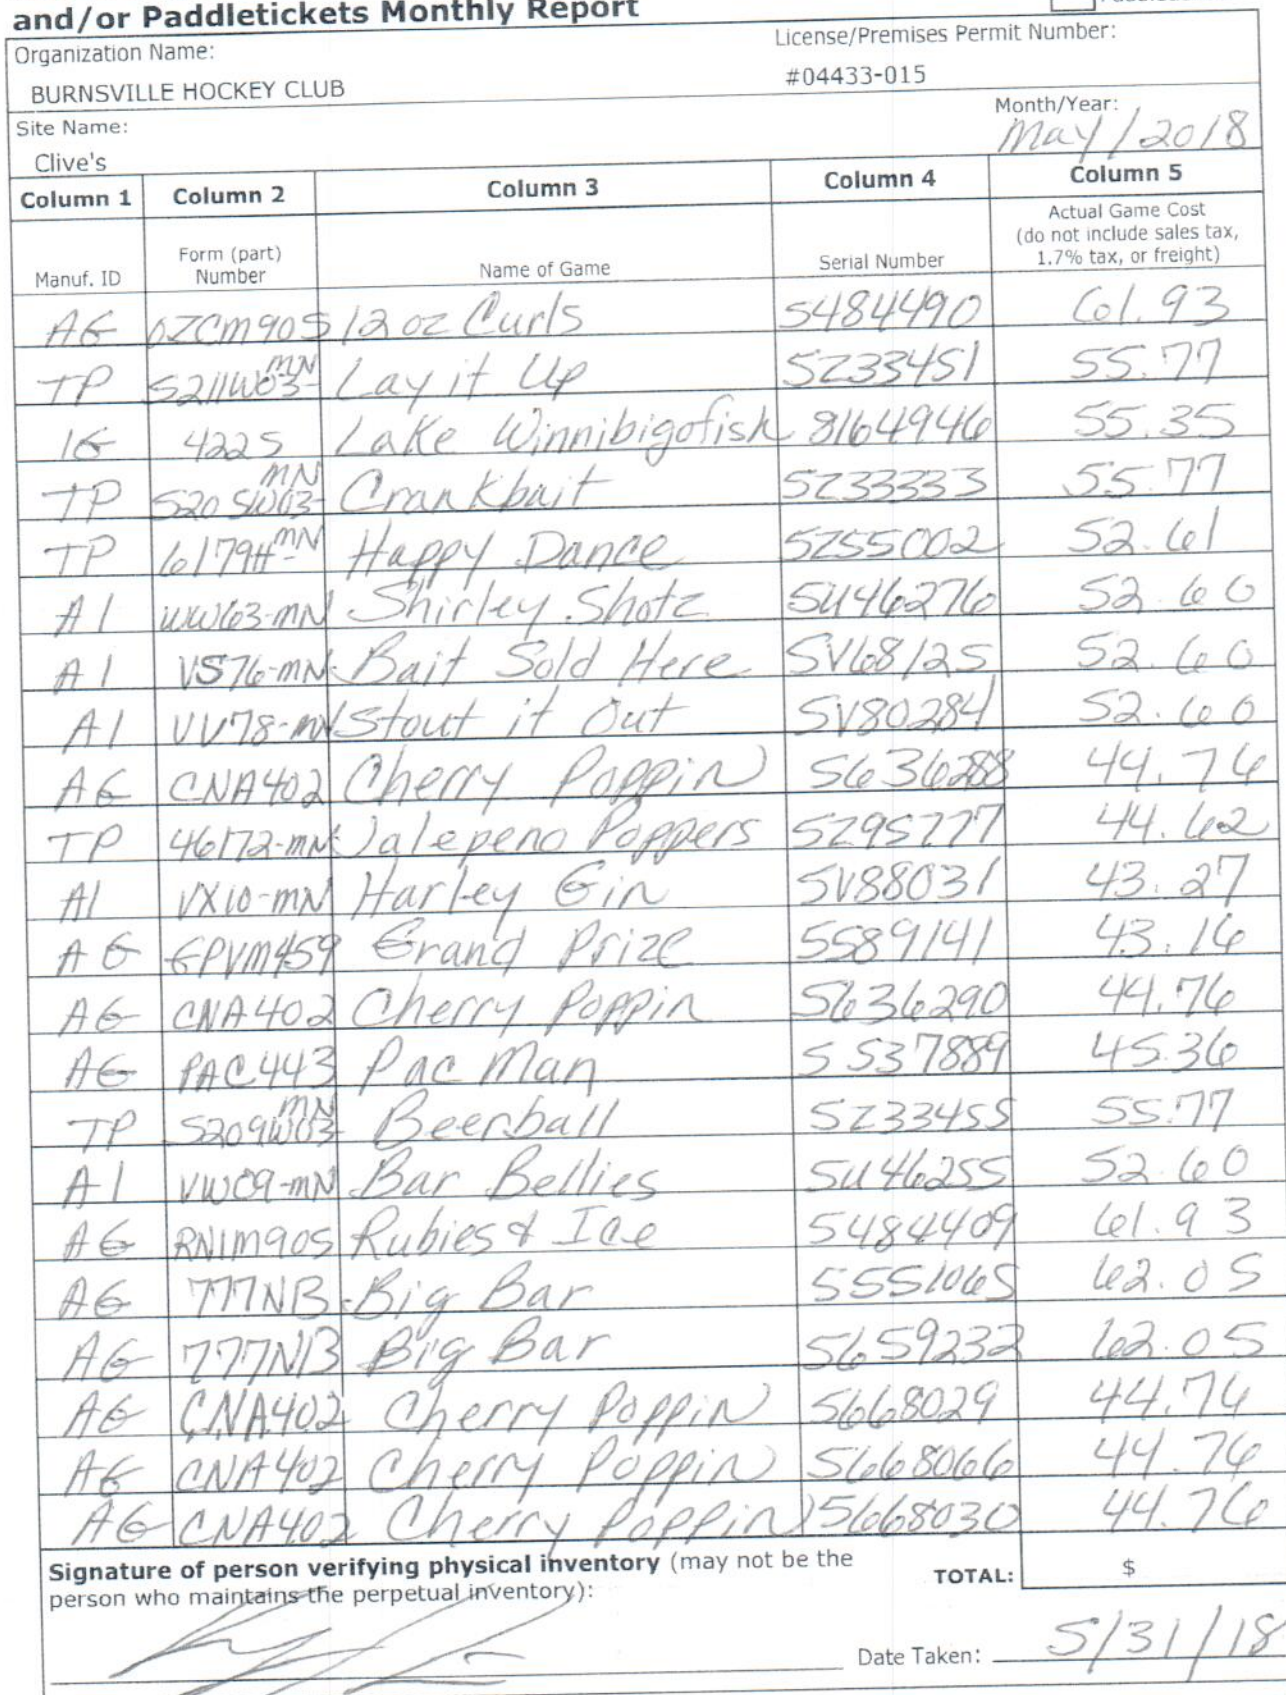 and/or Paddletickets Monthly Report
Organization Name: License/Premises Permit Number:
BURNSVILLE HOCKEY CLUB #04433-015
Site Name: Month/Year:
Clive's May/2018
Column 1 Column 2 Column 3 Column 4 Column 5
Manuf. ID Form (part) Number Name of Game Serial Number Actual Game Cost (do not include sales tax, 1.7% tax, or freight)
AG OZCM905 12 oz Curls 5484490 61.93
TP S211W03-MN Lay it Up 5Z33451 55.77
IG 4225 Lake Winnibigofish 8164946 55.35
TP S205W03-MN Crankbait 5Z33333 55.77
TP 6179H-MN Happy Dance 5Z55002 52.61
AI WW63-MN Shirley Shotz 5U46276 52.60
AI VS76-MN Bait Sold Here 5V68125 52.60
AI VV78-MN Stout it Out 5V80284 52.60
AG CNA402 Cherry Poppin 5636288 44.76
TP 46172-MN Jalepeno Poppers 5Z95777 44.62
AI VX10-MN Harley Gin 5V88031 43.27
AG GPVM459 Grand Prize 5589141 43.16
AG CNA402 Cherry Poppin 5636290 44.76
AG PAC443 Pac Man 5537889 45.36
TP S209W03-MN Beerball 5Z33455 55.77
AI VW09-MN Bar Bellies 5U46255 52.60
AG RNIM905 Rubies & Ice 5484409 61.93
AG 777NB Big Bar 5551065 62.05
AG 777NB Big Bar 5659232 62.05
AG CNA402 Cherry Poppin 5668029 44.76
AG CNA402 Cherry Poppin 5668066 44.76
AG CNA402 Cherry Poppin 5668030 44.76
Signature of person verifying physical inventory (may not be the TOTAL: $
person who maintains the perpetual inventory):
Date Taken: 5/31/18